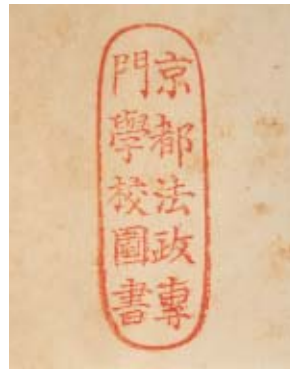 京都法政專
門學校圖書